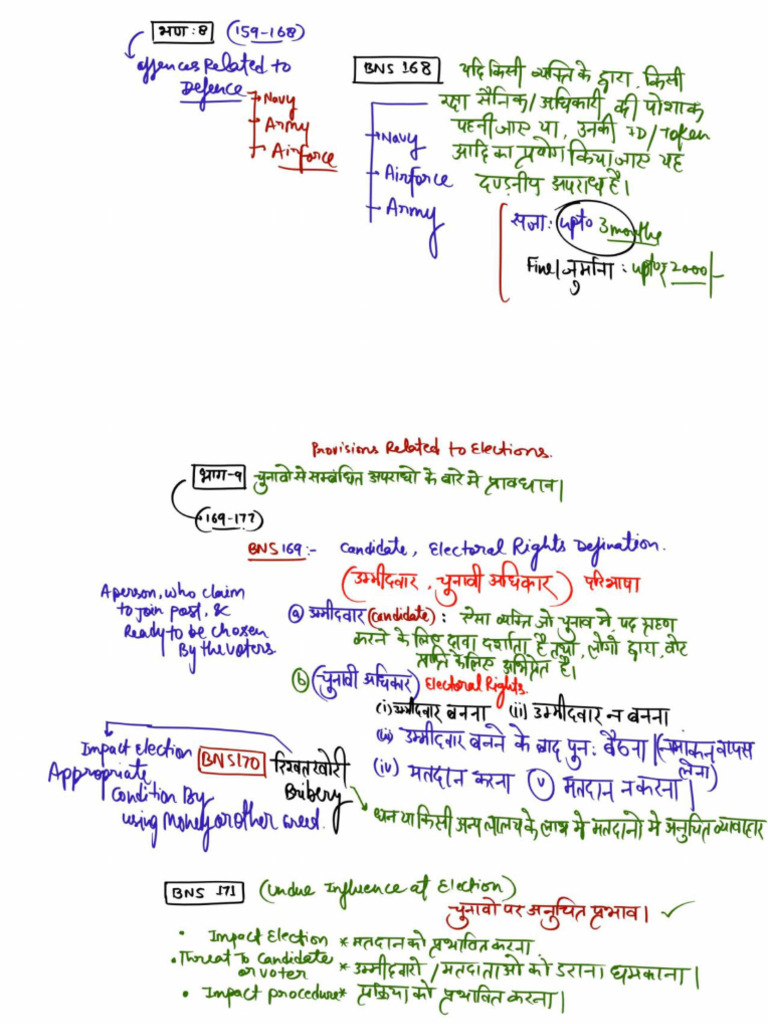 भाग : 8 (159-168)
offences Related to
Defence
Navy
Army
Airforce
BNS 168
यदि किसी व्यक्ति के द्वारा, किसी
रक्षा सैनिक/अधिकारी की पोशाक
पहनी जाए या, उनकी ID/Token
आदि का प्रयोग किया जाए यह
दण्डनीय अपराध है।
Navy
Airforce
Army
सजा: upto 3 months
Fine/जुर्माना : upto ₹2000/-
Provisions Related to Elections.
भाग-9 चुनावो से सम्बंधित अपराधो के बारे मे प्रावधान।
(169-177)
BNS 169:- Candidate, Electoral Rights Defination.
(उम्मीदवार, चुनावी अधिकार) परिभाषा
A person, who claim
to join post, &
Ready to be chosen
By the voters
(a) उम्मीदवार (Candidate) : ऐसा व्यक्ति जो चुनाव मे पद ग्रहण
करने के लिए दावा दर्शाता है तथा, लोगों द्वारा, वोट
प्राप्ति के लिए अभिप्रेत है।
(b) (चुनावी अधिकार) Electoral Rights.
(i) उम्मीदवार बनना (ii) उम्मीदवार न बनना
(iii) उम्मीदवार बनने के बाद पुन: बैठना (नामांकन वापस
लेना)
(iv) मतदान करना (v) मतदान न करना।
BNS 170 रिश्वतखोरी
Bribery
Impact Election
Appropriate
Condition By
using Money or other
धन या किसी अन्य लालच के लाभ मे मतदानो मे अनुचित व्यावहार
BNS 171 (Undue Influence at Election)
चुनावो पर अनुचित प्रभाव। ✓
• Impact Election * मतदान को प्रभावित करना
• Threat To Candidate or voter * उम्मीदवारो / मतदाताओ को डराना धमकाना।
• Impact procedure * प्रक्रिया को प्रभावित करना।